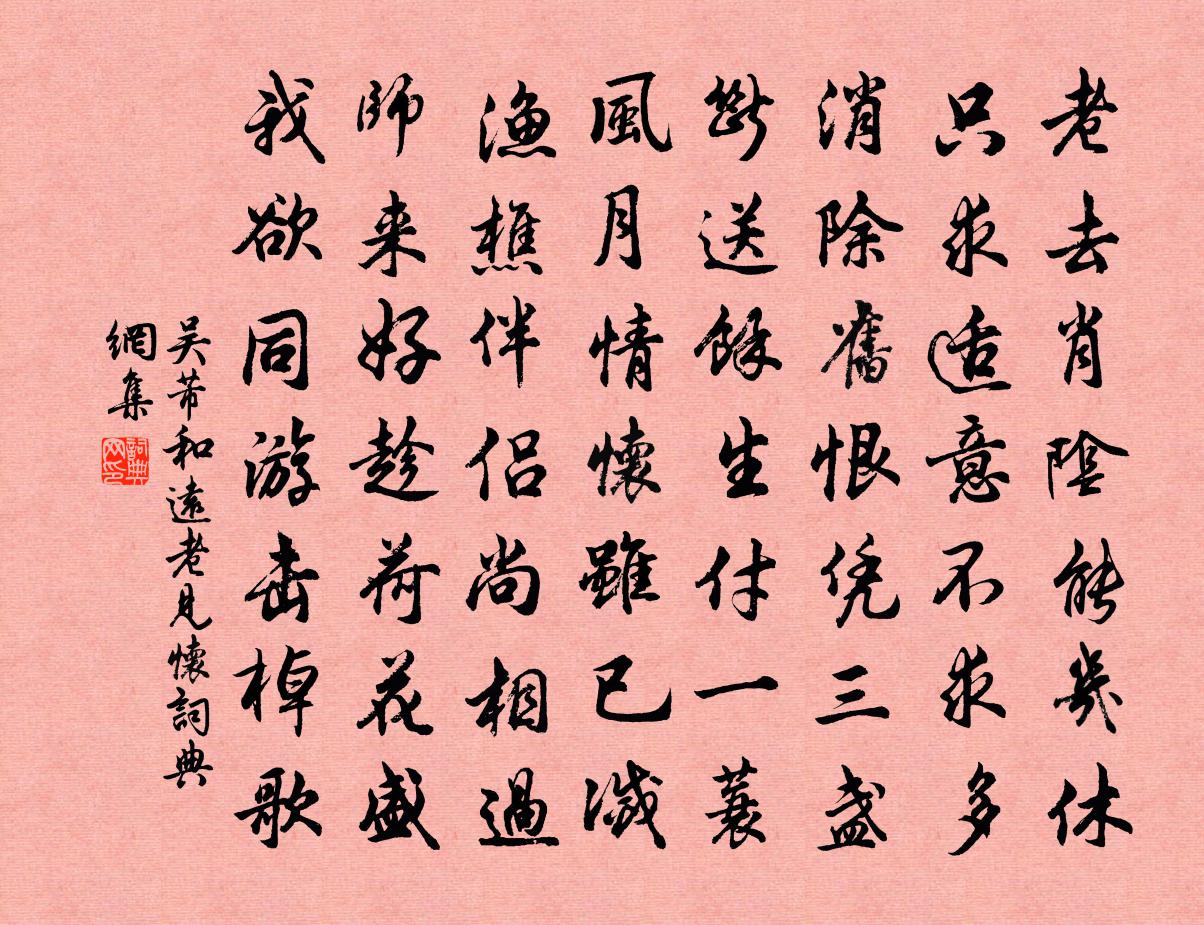 老去肖陰能幾休
只求适意不求多
消除舊恨凭三盏
斷送餘生付一蓑
風月情懷雖已減
漁樵伴侶尚相過
師来好趁荷花盛
我欲同游击棹歌
吴芾和遠老見懷詞典
網集
詞典
网印